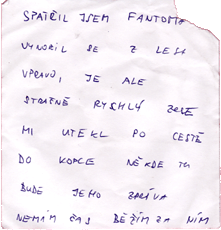 SPATŘIL JSEM FANTOMA
VYNOŘIL SE Z LESA
VPRAVO, JE ALE
STRAŠNĚ RYCHLÝ ZASE
MI UTEKL PO CESTĚ
DO KOPCE NĚKDE TU
BUDE JEHO
NEMÁM ČAS BĚŽÍM ZA NÍM